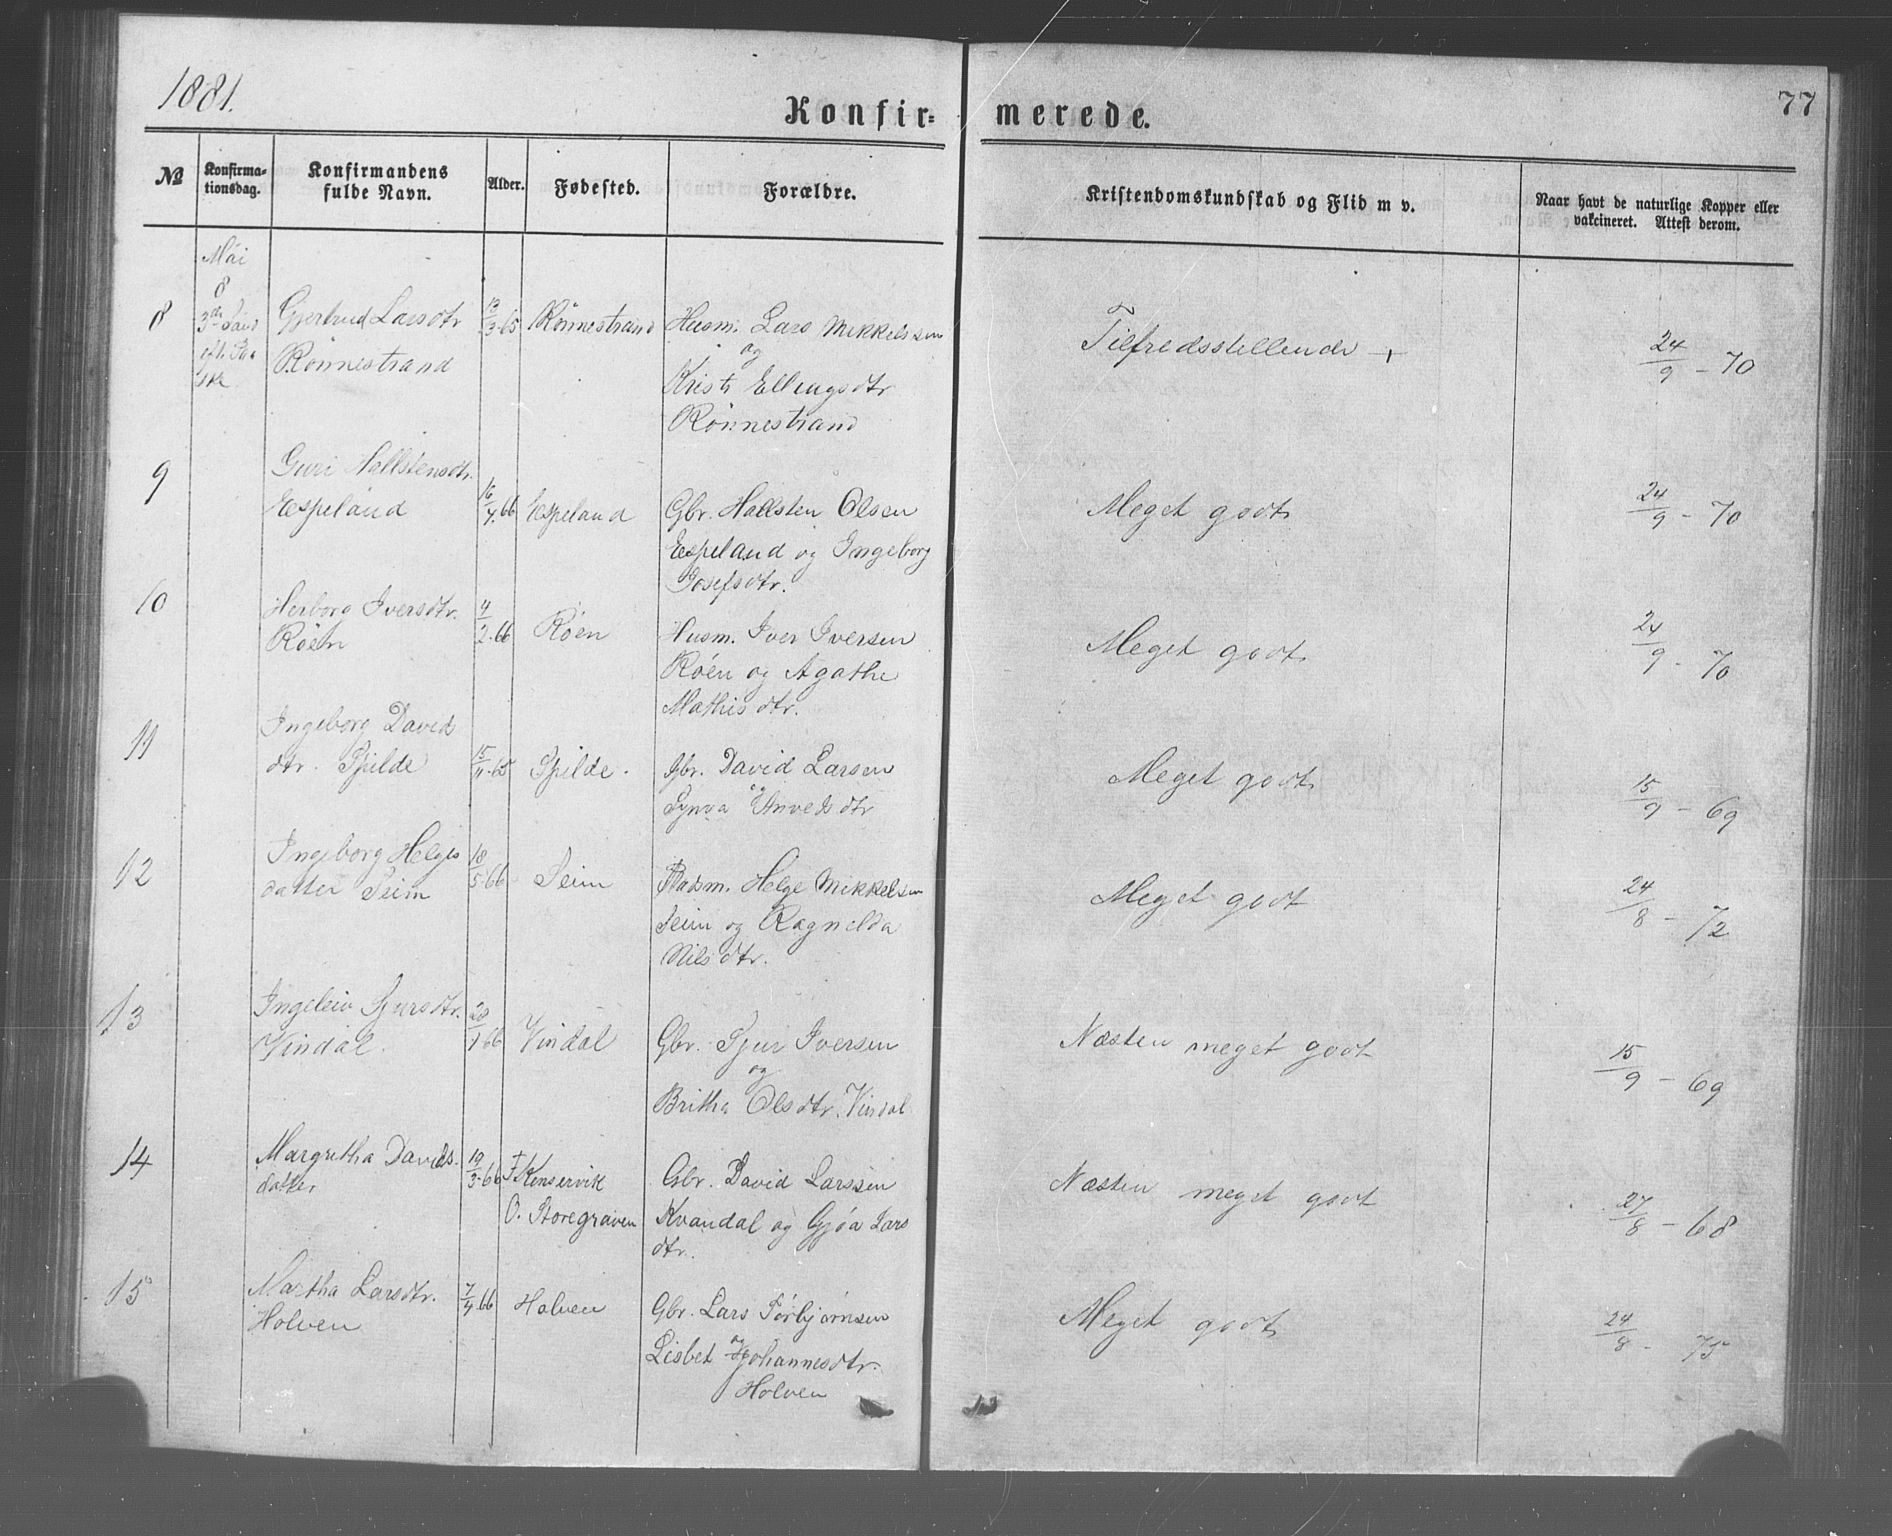 1881.
77
Konfir= merede.
No
Konfirma-
tionsdag.
Konfirmandens
fulde Navn.
Alder.
Fødested.
Forældre.
Kristendomskundskab og Flid m v.
Naar havt de naturlige Kopper eller
vakcineret. Attest derom.
Mai
8
8 Gjertrud Larsdtr
Rönnestrand
13/3-65 Rönnestrand
Husm. Lars Mikkelssen
og
Krist. Ellingsdtr
Rönnestrand
Tilfredsstellende +
24/9 - 70
9 Guri Hallstensdtr.
Espeland
16/4.66 Espeland
Gbr. Hallsten Olsen
Espeland og Ingeborg
Josefsdtr.
Meget godt
24/9 - 70
10 Herborg Iversdtr.
Röen
4/2.66 Röen
Husm. Iver Iversen
Röen og Agathe
Mathisdtr.
Meget godt
24/9 - 70
11 Ingeborg Davids
dtr. Spilde
15/11-65 Spilde.
Gbr. David Larsen
og
Synva
Meget godt
15/9 - 69
12 Ingeborg Helges
datter Seim
18/5-66 Seim
Helge Mikkelsen
Seim og Ragnilda
Nilsdtr.
Meget godt
24/8 - 72
13 Ingeleiv Sjursdtr.
Vindal.
28/1-66 Vindal
Gbr. Sjur Iversen
og
Britha Olsdtr. Vindal
Næsten meget godt
15/9 - 69
14 Margretha Davids-
datter
19/3-66 F. Kinservik
O. Storegraven
Gbr. David Larssen
Kvandal og Gjøa Lars
dtr.
Næsten meget godt
27/8 - 68
15 Martha Larsdtr.
Holven
7/4.66 Holven
Gbr. Lars Torbjørnsen
og
Lisbet Johannesdtr.
Holven
Meget godt
24/8 - 75